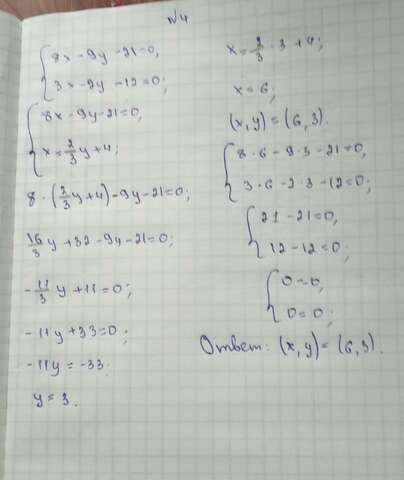 №4
{8x - 9y - 21 = 0,
3x - 2y - 12 = 0;
{8x - 9y - 21 = 0,
x = 2/3 y + 4;
8 · (2/3 y + 4) - 9y - 21 = 0;
16/3 y + 32 - 9y - 21 = 0;
-11/3 y + 11 = 0;
-11y + 33 = 0;
-11y = -33.
y = 3.
x = 2/3 · 3 + 4;
x = 6;
(x, y) = (6, 3).
{8 · 6 - 9 · 3 - 21 = 0,
3 · 6 - 2 · 3 - 12 = 0;
{21 - 21 = 0,
12 - 12 = 0;
{0 = 0,
0 = 0;
Ответ: (x, y) = (6, 3).